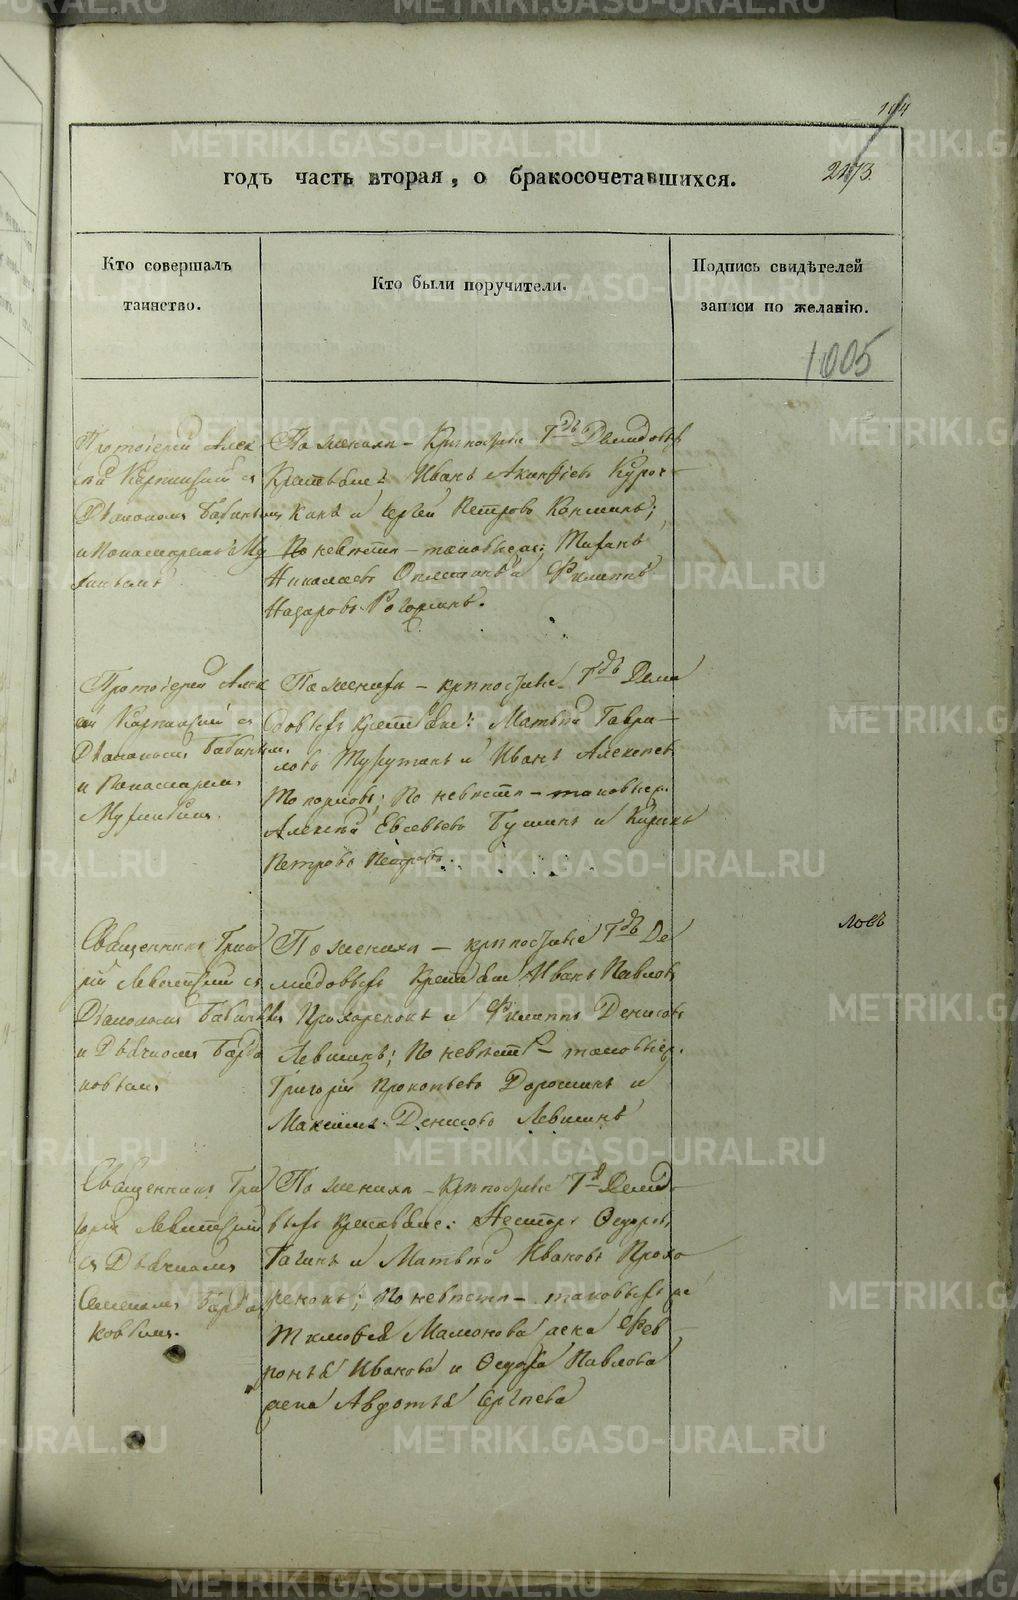 194
2173.
годъ часть вторая, о бракосочетавшихся.
Кто совершалъ
таинство.
Кто были поручители.
Подпись свидѣтелей
записи по желанію.
1005
Протоіерей Алек
сѣй Карпинскій съ
Діакономъ Бабинымъ
и Пономаремъ
По женихѣ – Крѣпостные Гдъ Демидовыхъ
Крестьяне: Иванъ Акинфіевъ Куроч
кинъ и Сергей Петровъ Коншинъ;
По невѣстѣ – таковые же:
Николаевъ и Филиппъ
Назаровъ Рогожинъ.
Протоіерей Алек
сѣй Карпинскій съ
Діакономъ Бабинымъ
и Пономаремъ
По женихѣ – крѣпостные Гдъ Деми
довыхъ крестьяне: Матвѣй Гаври
ловъ и Иванъ Алексѣевъ
Топорковъ; По невѣстѣ – таковые же.
Алексѣй Евсевьевъ и
Петровъ Петровъ.
Священникъ Григо
рій Левитскій съ
Діакономъ Бабинымъ
и Дьячкомъ Барда
ковымъ
По женихѣ – крѣпостные Гдъ Де
мидовыхъ крестьяне Иванъ Павловъ
Прохоренокъ и Филиппъ Денисовъ
Левшинъ; По невѣстѣ – таковые же.
Григорій Прокопьевъ Дорошинъ и
Максимъ Денисовъ Левшинъ
ловъ
Священникъ Гри
горій Левитскій
съ Дьячкомъ
Семеномъ Барда
ковымъ.
По женихѣ – Крѣпостные Гд Демидо
выхъ крестьяне: Несторъ Ѳедоровъ
Гагинъ и Матвѣй Ивановъ Прохо
ренокъ; По невѣстѣ – таковыхъ же
Тимофея Мамонова жена Фев
ронья Иванова и Ѳедора Павлова
жена Авдотья Сергѣева
METRIKI.GASO-URAL.RU